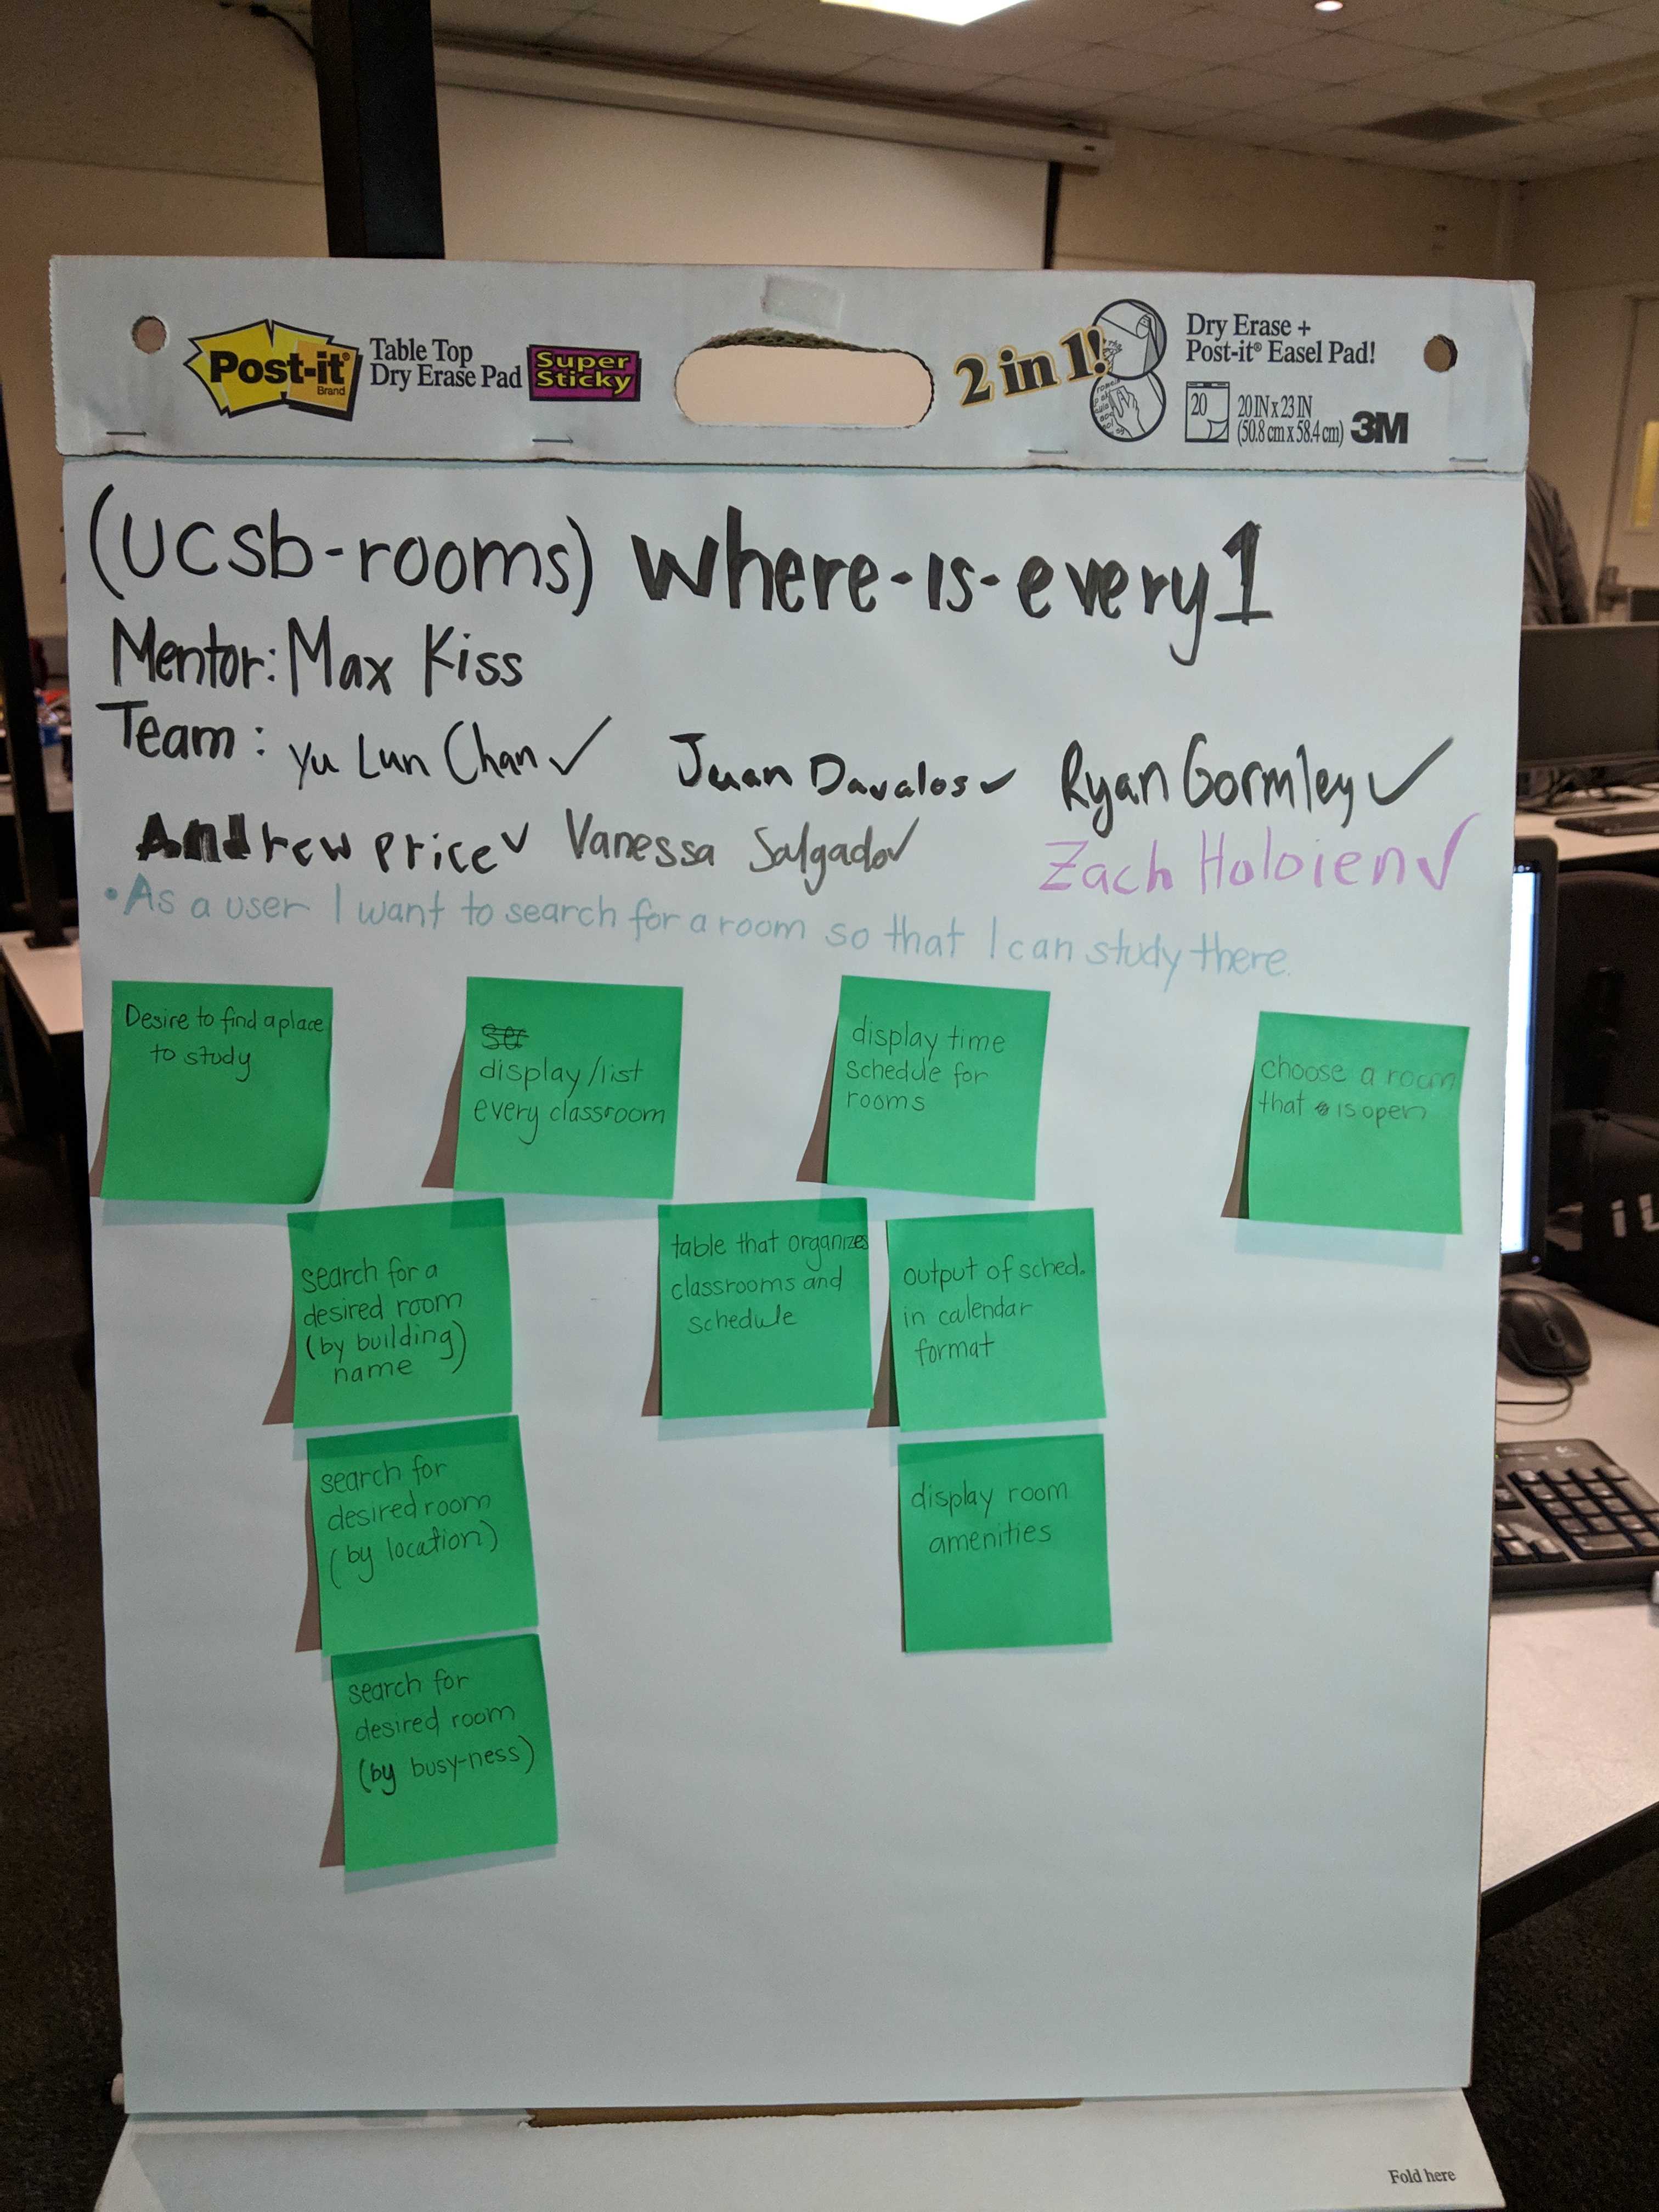 Post-it®
Brand
Table Top
Dry Erase Pad
Super
Sticky
2 in 1!
Dry Erase +
Post-it® Easel Pad!
20
20 IN x 23 IN
(50.8 cm x 58.4 cm)
3M
(ucsb-rooms) where-is-every1
Mentor: Max Kiss
Team: Yu Lun Chan ✓ Juan Davalos ✓ Ryan Gormley ✓
Andrew Price ✓ Vanessa Salgado ✓ Zach Holoien ✓
• As a user I want to search for a room so that I can study there.
Desire to find a place
to study
display/list
every classroom
display time
schedule for
rooms
choose a room
that is open
search for a
desired room
(by building)
name
table that organizes
classrooms and
schedule
output of sched.
in calendar
format
search for
desired room
(by location)
display room
amenities
search for
desired room
(by busy-ness)
Fold here